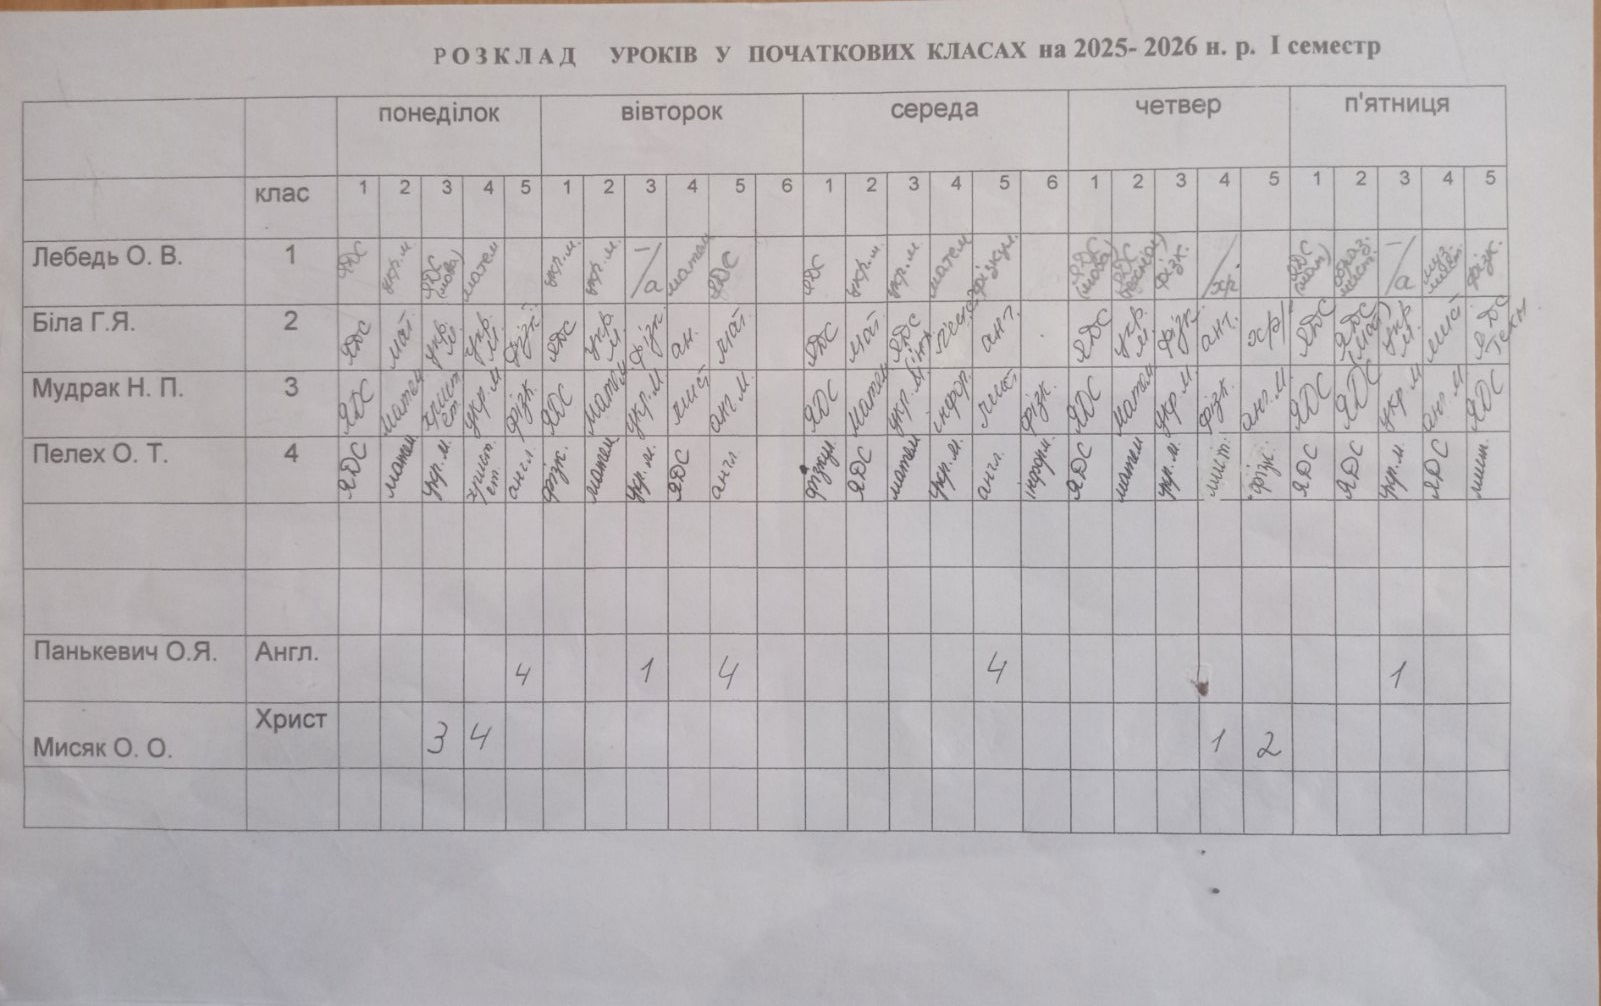 РОЗКЛАД УРОКІВ У ПОЧАТКОВИХ КЛАСАХ на 2025- 2026 н. р. І семестр
понеділок вівторок середа четвер п'ятниця
клас 1 2 3 4 5 1 2 3 4 5 6 1 2 3 4 5 6 1 2 3 4 5 1 2 3 4 5
Лебедь О. В. 1 ЯДС укр.м. ЯДС (мова) матем укр.м. укр.м. –/а матем ЯДС ЯДС укр.м. укр.м. матем фізкул. ЯДС (мова) ЯДС фізк. /хр. ЯДС (мат) образ. мист. –/а муз. мист. фізк.
Біла Г.Я. 2 ЯДС мат. укр. м. укр. м. фізк. ЯДС укр. м. фізк. ан. мат. ЯДС мат. ЯДС анг. ЯДС укр. м. фізк анг. хр/ ЯДС ЯДС (мат) укр м. мист ЯДС техн
Мудрак Н. П. 3 ЯДС матем христ ет. укр.м фізк. ЯДС матем укр.м мист. анг.м. ЯДС матем укр.м. інфор. мист. фізк. ЯДС матем укр.м. фізк. анг.м. ЯДС ЯДС укр.м анг.м. ЯДС
Пелех О. Т. 4 ЯДС матем укр.м. христ. ет. англ. фізк. матем укр.м. ЯДС англ. фізкул. ЯДС матем укр.м. англ. інформ. ЯДС матем укр.м. мист. фізк. ЯДС ЯДС укр.м. ЯДС мист.
Панькевич О.Я. Англ. 4 1 4 4 1
Мисяк О. О. Христ 3 4 1 2